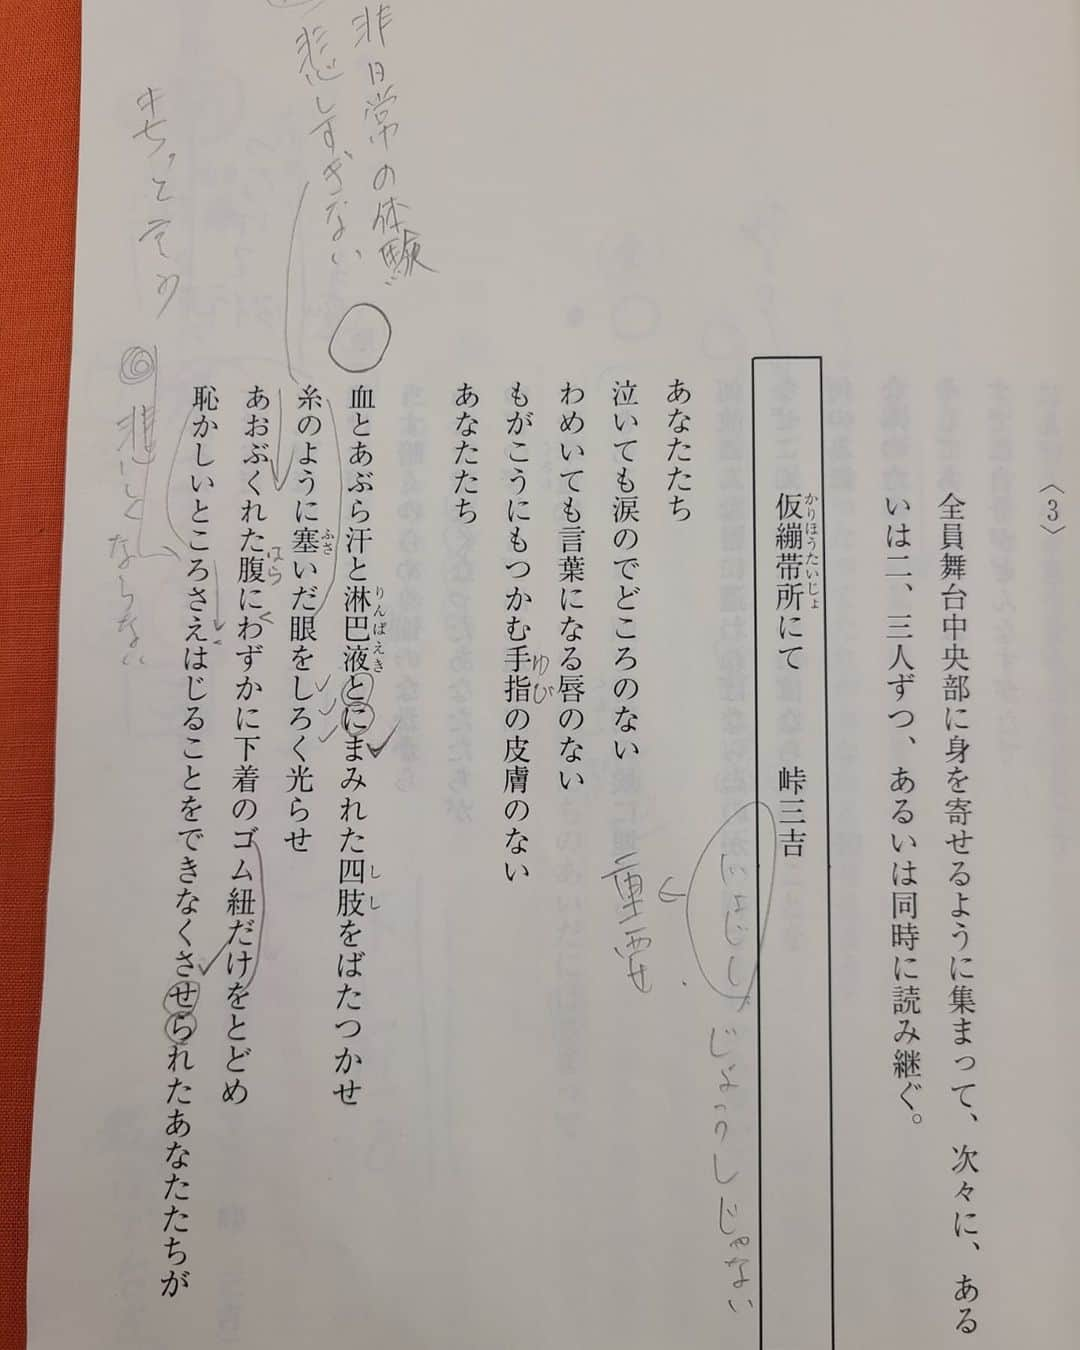 〈3〉
全員舞台中央部に身を寄せるように集まって、次々に、ある
いは二、三人ずつ、あるいは同時に読み継ぐ。
仮繃帯所にて　峠三吉
かりほうたいじょ
じょじし
じょうしじゃない
重要
あなたたち
泣いても涙のでどころのない
わめいても言葉になる唇のない
もがこうにもつかむ手指の皮膚のない
ゆび
あなたたち
非日常の体験
血とあぶら汗と淋巴液とにまみれた四肢をばたつかせ
りんぱえき
しし
悲しすぎない
糸のように塞いだ眼をしろく光らせ
ふさ
あおぶくれた腹にわずかに下着のゴム紐だけをとどめ
はら
恥かしいところさえはじることをできなくさせられたあなたたちが
悲しくならない